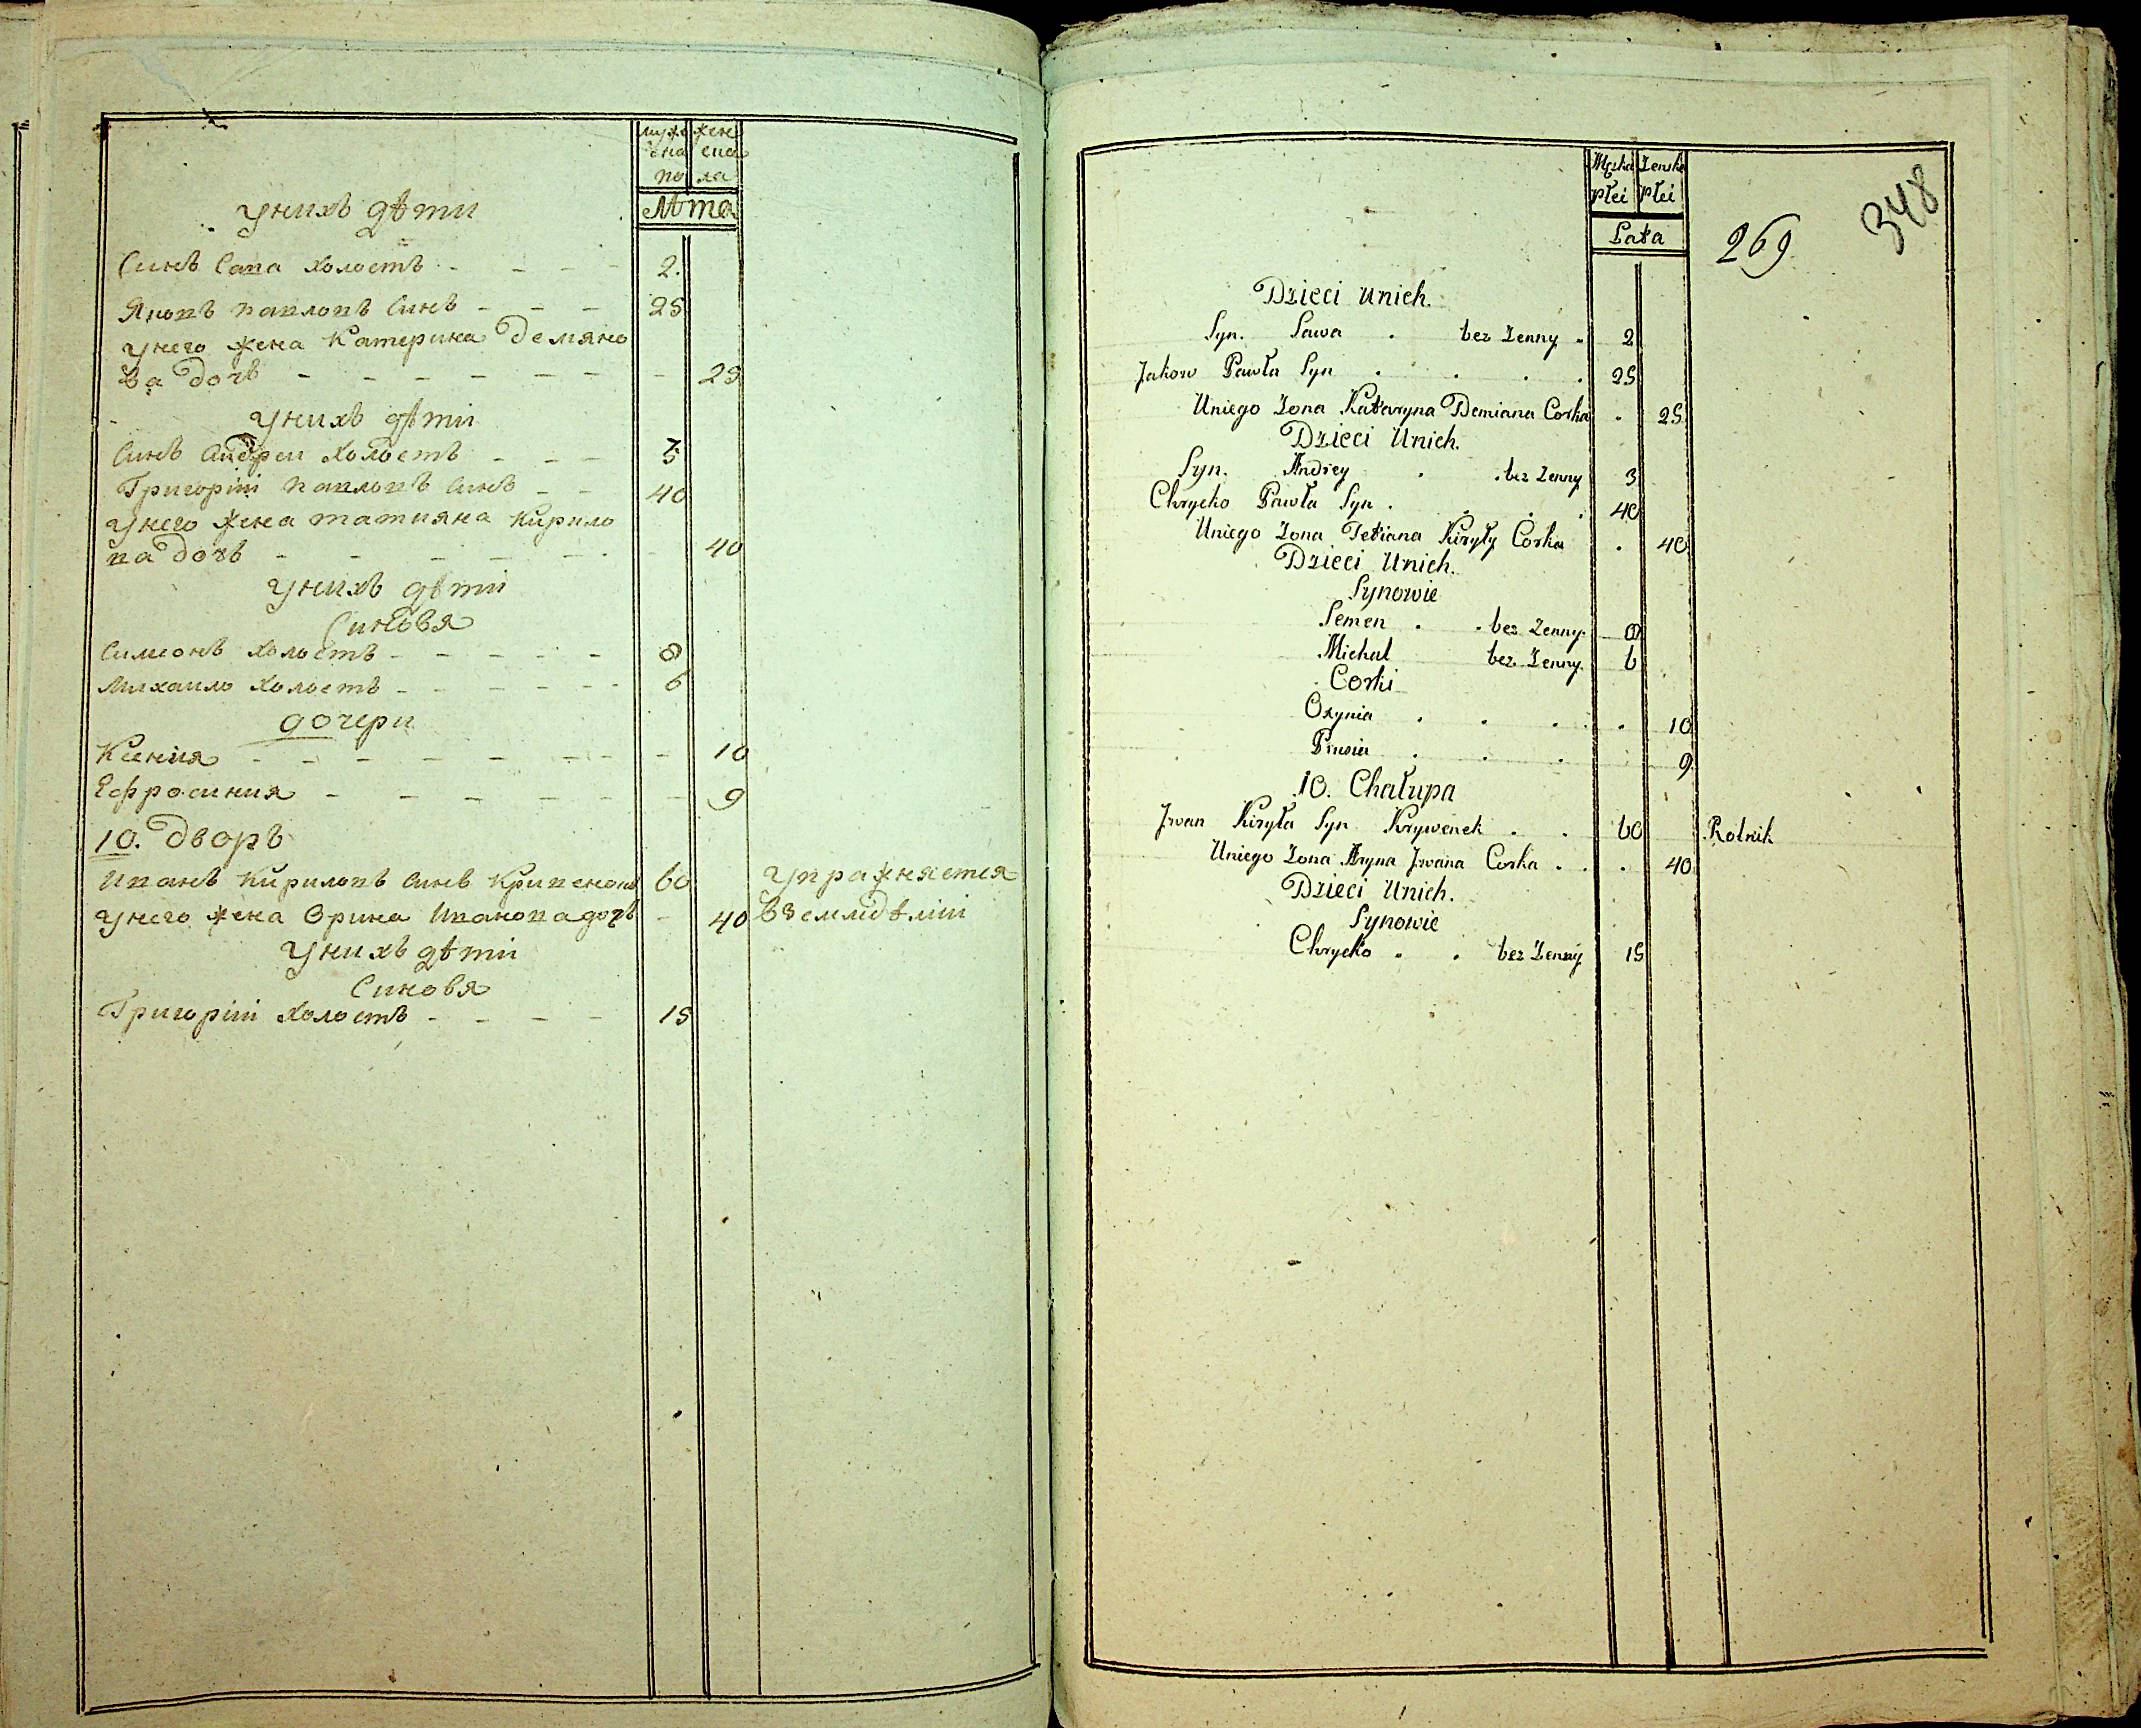 муже жен
ска ска
по ла
Лѣта
Унихъ дѣти
Синъ Сава холостъ 2.
Яковъ павловъ Синъ 25
Унего жена Катерина Демяно
ва дочъ 25
Унихъ дѣти
Синъ Андреи холостъ 3
Григоріи павловъ Синъ 40
Унего жена татияна Кирило
ва дочъ 40
Унихъ дѣти
Синовя
Симионъ холостъ 8
Михаило холостъ 6
дочери
Ксения 10
Ефросиния 9
10. дворъ
Иванъ Кириловъ Синъ Кривенокъ 60 Упражняется
Унего жена Орина Иванова дочъ 40 вземлидѣліи
Унихъ дѣти
Синовя
Григоріи холостъ 15
Męska Zenska
Płci Płci
Lata
269
348
Dzieci Unich.
Syn. Sawa bez Zenny 2
Jakow Pawła Syn 25
Uniego Zona Kataryna Demiana Corka 25
Dzieci Unich.
Syn. Andrey bez Zenny 3
Chrycko Pawła Syn 40
Uniego Zona Tetiana Kiryły Corka 40
Dzieci Unich.
Synowie
Semen bez Zenny 8
Michal bez Zenny 6
Corki
Oxynia 10
Prusia 9
10. Chałupa
Jwan Kiryła Syn Krywenek 60 Rolnik
Uniego Zona Aryna Jwana Corka 40
Dzieci Unich.
Synowie
Chrycko bez Zenny 15